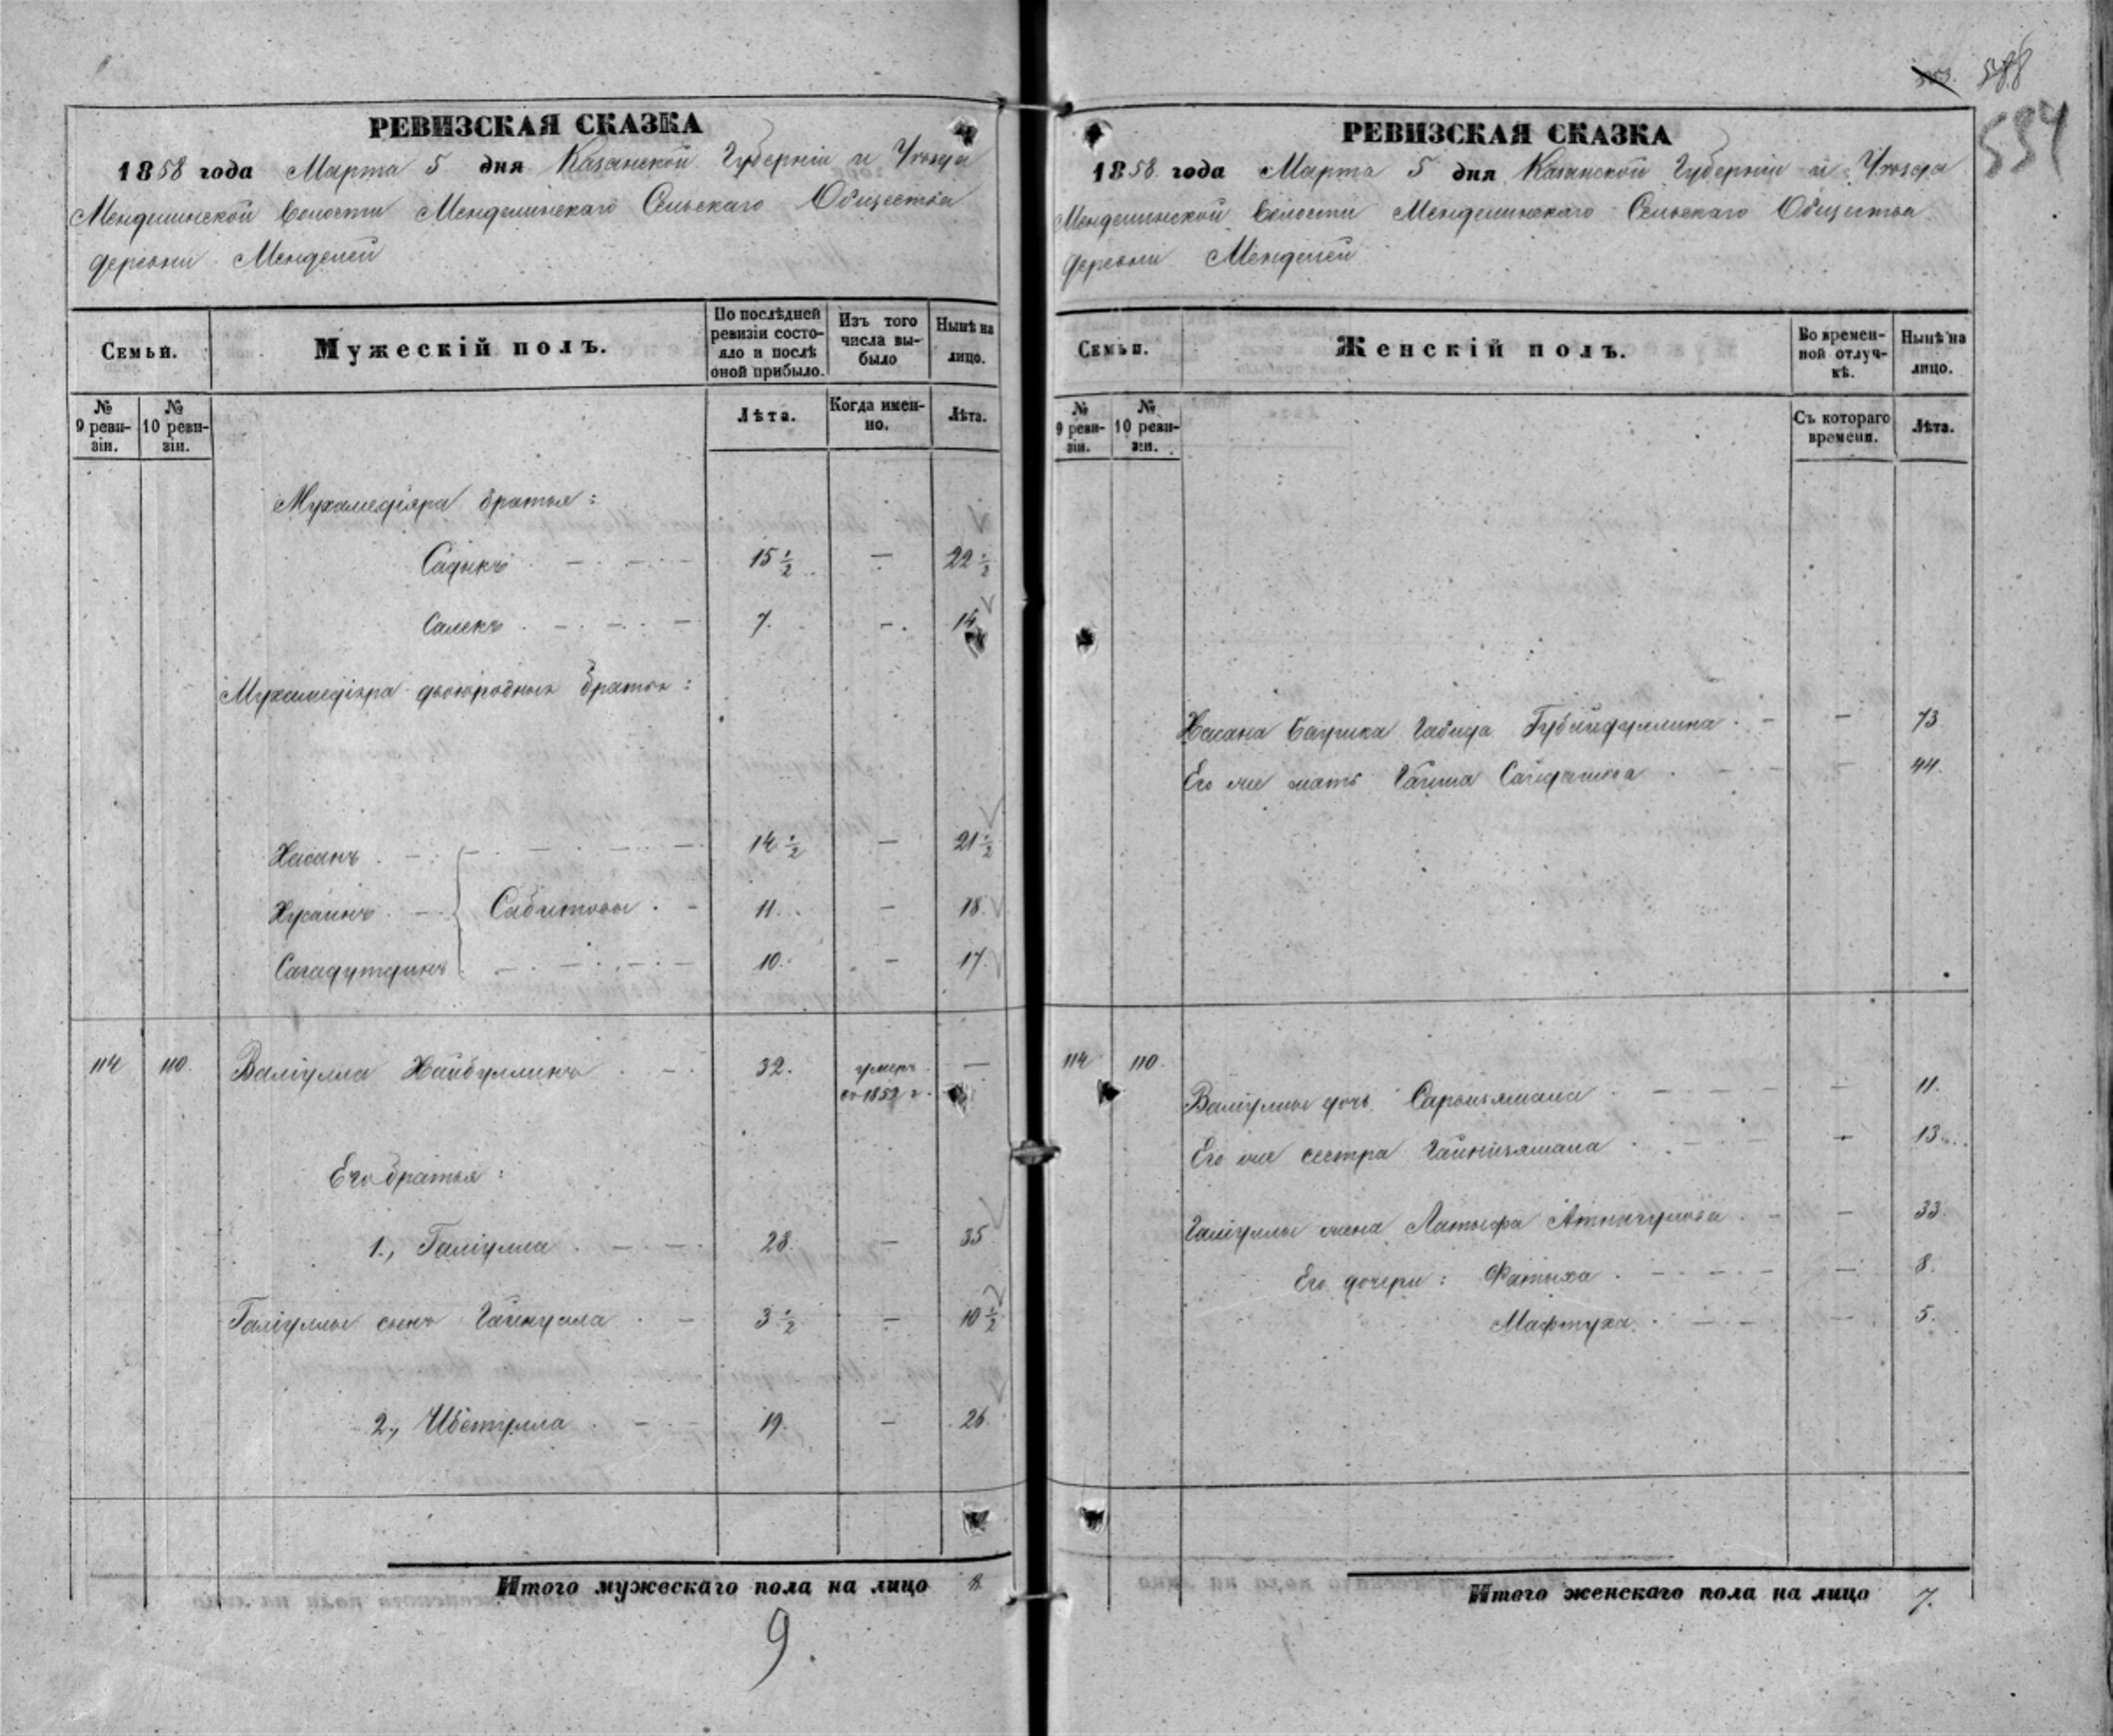 588
534
РЕВИЗСКАЯ СКАЗКА
1858 года Марта 5 дня Казанской Губерніи и Уѣзда
Менделинской Волости Менделинскаго Сельскаго Общества
деревни Менделей
Семьи.
Мужескій полъ.
По послѣдней ревизіи состояло и послѣ оной прибыло.
Изъ того числа выбыло
Нынѣ на лицо.
№ 9 ревизіи.
№ 10 ревизіи.
Лѣта.
Когда именно.
Лѣта.
Мухамедіяра братья:
Садыкъ 15 1/2 — 22 1/2
Салекъ 7. — 14
Мухамедіяра двоюродныя братья:
Хасанъ 14 1/2 — 21 1/2
Хусаинъ Сабитовы 11. — 18.
Сагадутдинъ 10. — 17.
114 110. Валіулла Хайбуллинъ 32. умеръ въ 1852 г. —
Его братья:
1., Галіулла 28. — 35
Галіуллы сынъ Гайнулла 3 1/2 — 10 1/2
2., 19. — 26
Итого мужескаго пола на лицо 8.
9.
РЕВИЗСКАЯ СКАЗКА
1858 года Марта 5 дня Казанской Губерніи и Уѣзда
Менделинской Волости Менделинскаго Сельскаго Общества
деревни Менделей
Семьи.
Женскій полъ.
Во временной отлучкѣ.
Нынѣ на лицо.
№ 9 ревизіи.
№ 10 ревизіи.
Съ котораго времени.
Лѣта.
Хасана Габида — 73.
Его же мать — 44.
114 110.
Валіуллы дочь — 11.
Его же сестра — 13.
Галіуллы жена Латыфа — 33.
Его дочери: Фатыха — 8.
Мафтуха — 5.
Итого женскаго пола на лицо 7.